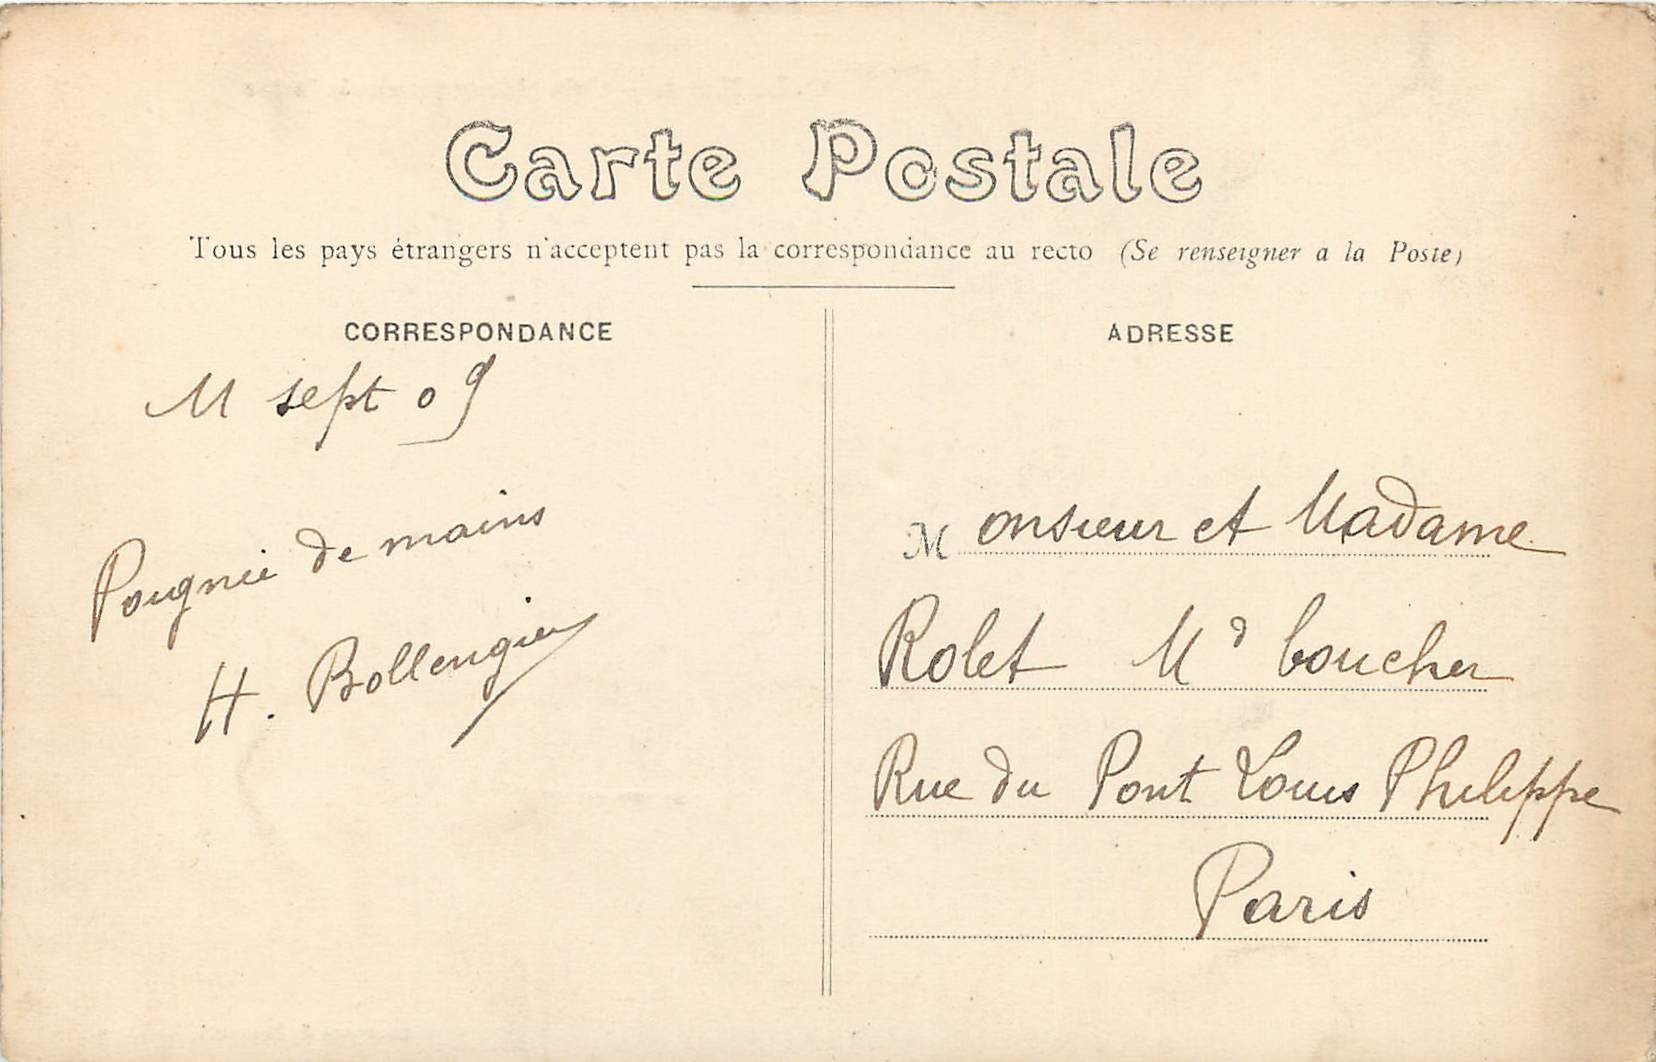 Carte Postale
Tous les pays étrangers n'acceptent pas la correspondance au recto (Se renseigner a la Poste)
CORRESPONDANCE
11 sept 09
Poignée de mains
H. Bollengier
ADRESSE
Monsieur et Madame
Rolet Md boucher
Rue du Pont Louis Philippe
Paris